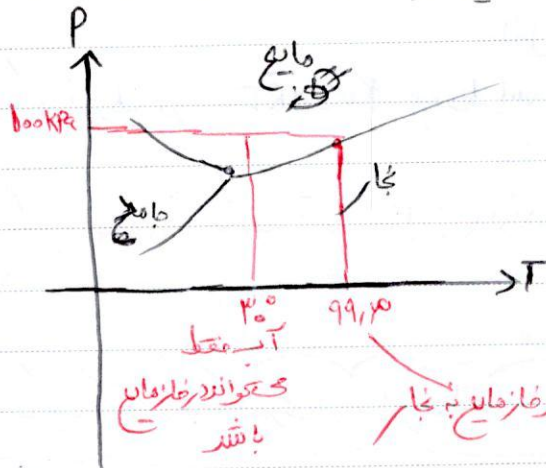 P
مایع
100KPa
جامد
بخار
T
۳۰°
۹۹,۶
آب فقط
می تواند در فاز مایع
باشد
از فاز مایع به بخار